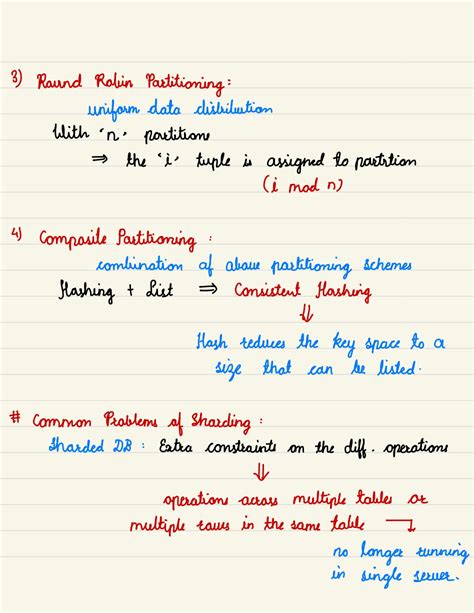 3) Round Robin Partitioning:
uniform data distribution
With 'n' partitions
⇒ the 'i' tuple is assigned to partition
(i mod n)
4) Composite Partitioning :
combination of above partitioning schemes
Hashing + List ⇒ Consistent Hashing
⇓
Hash reduces the key space to a
size that can be listed.
# Common Problems of Sharding :
Sharded DB : Extra constraints on the diff. operations
⇓
operations across multiple tables or
multiple rows in the same table →
no longer running
in single server.